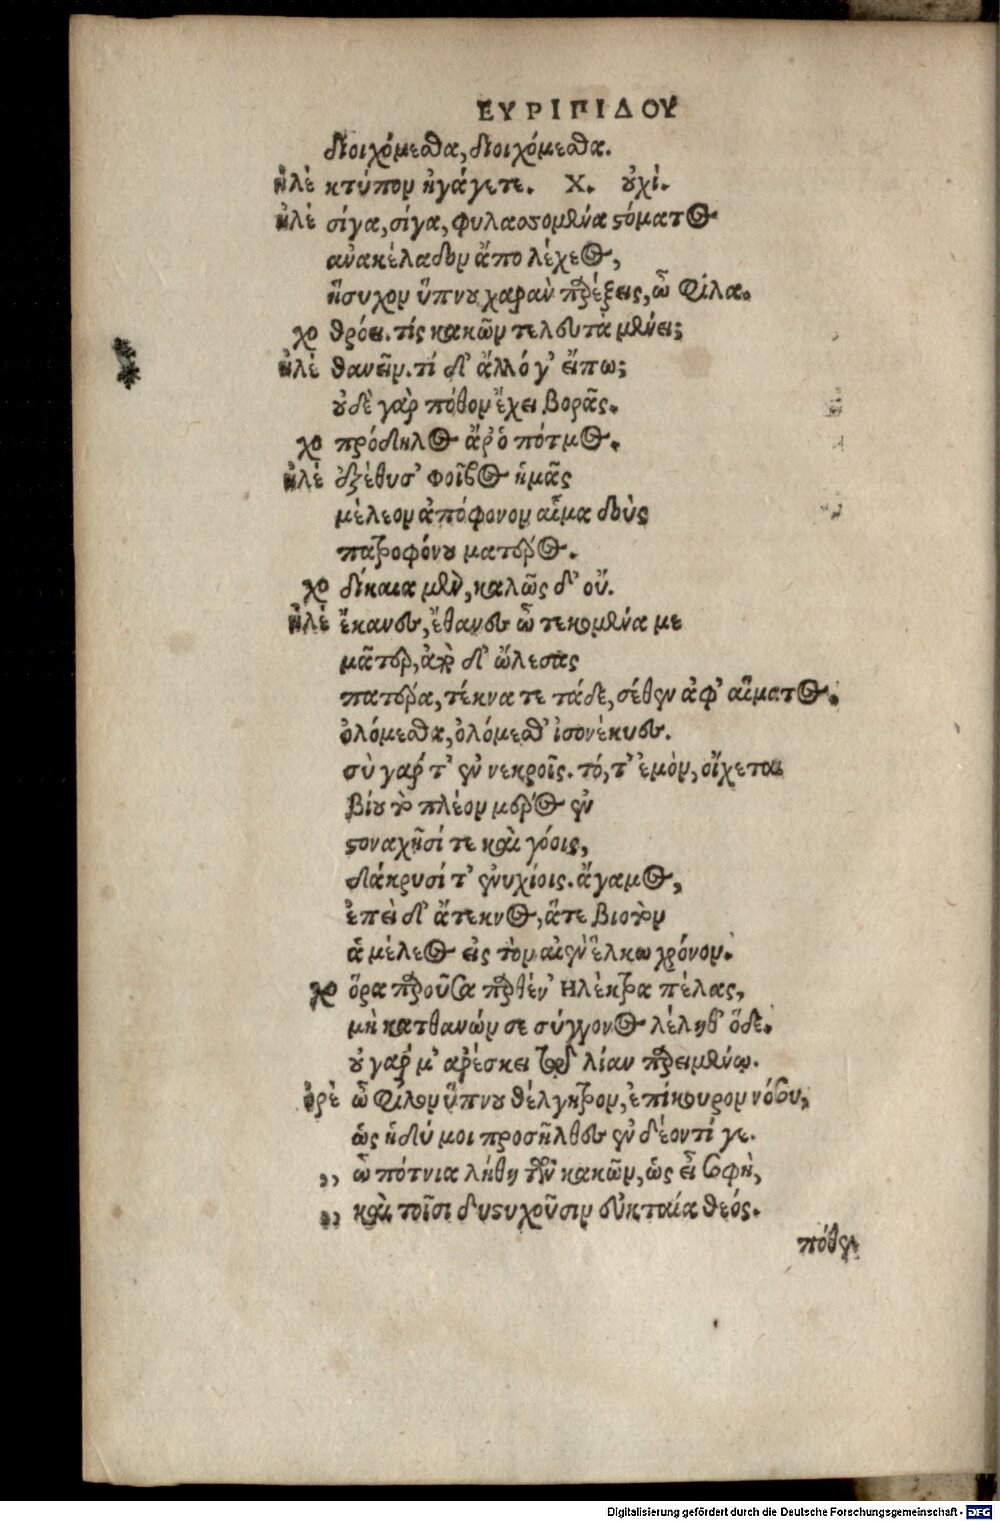 ΕΥΡΙΠΙΔΟΥ
διοιχόμεθα, διοιχόμεθα.
ἠλέ κτύπον ἠγάγετε. Χ. οὐχί.
ἠλέ σίγα, σίγα, φυλασσομένα στόματος
ἀνακέλαδον ἄπο λέχεος,
ἥσυχον ὕπνου χαρὰν παρέξεις, ὦ φίλα.
χο θρόει. τίς κακῶν τελευτὰ μένει;
ἠλέ θανεῖν. τί δ' ἄλλό γ' εἴπω;
οὐδὲ γὰρ πόθον ἔχει βορᾶς.
χο πρόδηλος ἄρ' ὁ πότμος.
ἠλέ ἐξέθυσ' φοῖβος ἡμᾶς
μέλεον ἀπόφονον αἷμα δοὺς
πατροφόνου ματέρος.
χο δίκαια μὲν, καλῶς δ' οὔ.
ἠλέ ἔκανες, ἔθανες ὦ τεκομένα με
μᾶτερ, ἀπὸ δ' ὤλεσας
πατέρα, τέκνα τε τάδε, σέθεν ἀφ' αἵματος.
ὀλόμεθα, ὀλόμεθ' ἰσονέκυες.
σὺ γάρ τ' ἐν νεκροῖς. τό, τ' ἐμὸν, οἴχεται
βίου τὸ πλέον μέρος ἐν
στοναχῇσί τε καὶ γόοις,
δάκρυσί τ' ἐννυχίοις. ἄγαμος,
ἐπὶ δ' ἄτεκνος, ἅτε βιοτὸν
ἁ μέλεος εἰς τὸν αἰὲν ἕλκω χρόνον.
χο ὅρα παροῦσα παρθέν' Ηλέκτρα πέλας,
μὴ κατθανών σε σύγγονος λέληθ' ὅδε.
οὐ γάρ μ' ἀρέσκει τῷ λίαν παρειμένῳ.
ὀρέ ὦ φίλον ὕπνου θέλγητρον, ἐπίκουρον νόσου,
ὡς ἡδύ μοι προσῆλθες ἐν δέοντί γε.
,, ὦ πότνια λήθη τῶν κακῶν, ὡς εἶ σοφὴ,
,, καὶ τοῖσι δυστυχοῦσιν εὐκταία θεός.
πόθεν
Digitalisierung gefördert durch die Deutsche Forschungsgemeinschaft - DFG